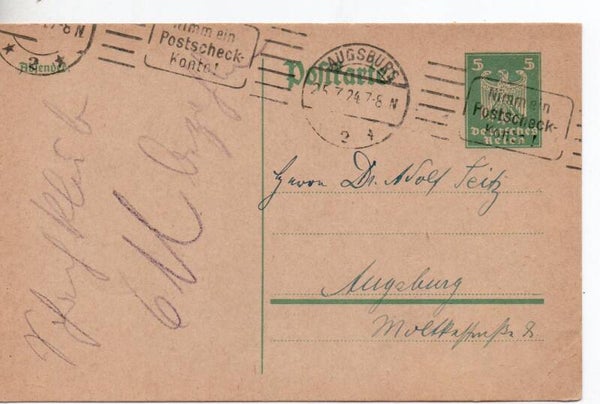 7-8 N
2
Nimm ein
Postscheck-
Konto!
Absender:
Postkarte
AUGSBURG
25.7.24.7-8 N
2
5 5
Nimm ein
Postscheck-
!
Deutsches
Reich
Herrn Dr. Adolf Seitz
Augsburg
Moltkestraße 8